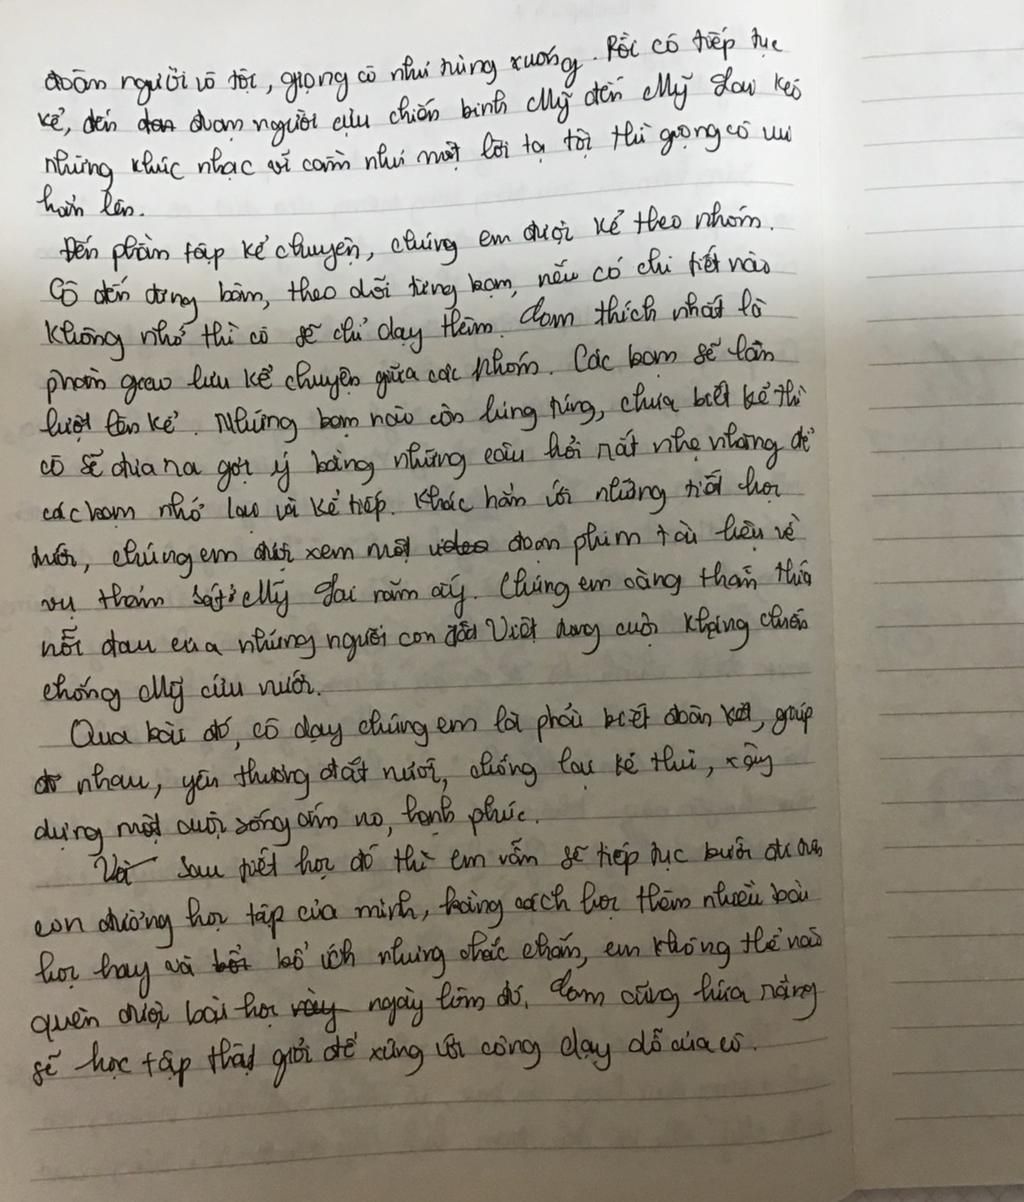 đoàn người vô tội, giọng cô như rùng xuống. Rồi cô tiếp tục
kể, đến đoạn người cựu chiến binh Mỹ đến Mỹ Lai kéo
những khúc nhạc vĩ cầm như một lời tạ tội thì giọng cô vui
hẳn lên.
Đến phần tập kể chuyện, chúng em được kể theo nhóm.
Cô đến từng bàn, theo dõi từng bạn, nếu có chi tiết nào
không nhớ thì cô sẽ chỉ dạy thêm. thích nhất là
phần giao lưu kể chuyện giữa các nhóm. Các bạn sẽ lần
lượt lên kể. Những bạn nào còn lúng túng, chưa biết kể thì
cô sẽ đưa ra gợi ý bằng những câu hỏi rất nhẹ nhàng để
các bạn nhớ lại và kể tiếp. Khác hẳn với những tiết học
trước, chúng em được xem một video đoạn phim tài liệu về
vụ thảm sát Mỹ Lai năm ấy. Chúng em càng thấm thía
nỗi đau của những người con đất Việt trong cuộc kháng chiến
chống Mỹ cứu nước.
Qua bài đó, cô dạy chúng em là phải biết đoàn kết, giúp
đỡ nhau, yêu thương đất nước, chống lại kẻ thù, xây
dựng một cuộc sống ấm no, hạnh phúc.
Và sau tiết học đó thì em vẫn sẽ tiếp tục bước đi trên
con đường học tập của mình, bằng cách học thêm nhiều bài
học hay và bổ ích nhưng chắc chắn, em không thể nào
quên được bài học ngày hôm đó. cũng hứa rằng
sẽ học tập thật giỏi để xứng với công dạy dỗ của cô.